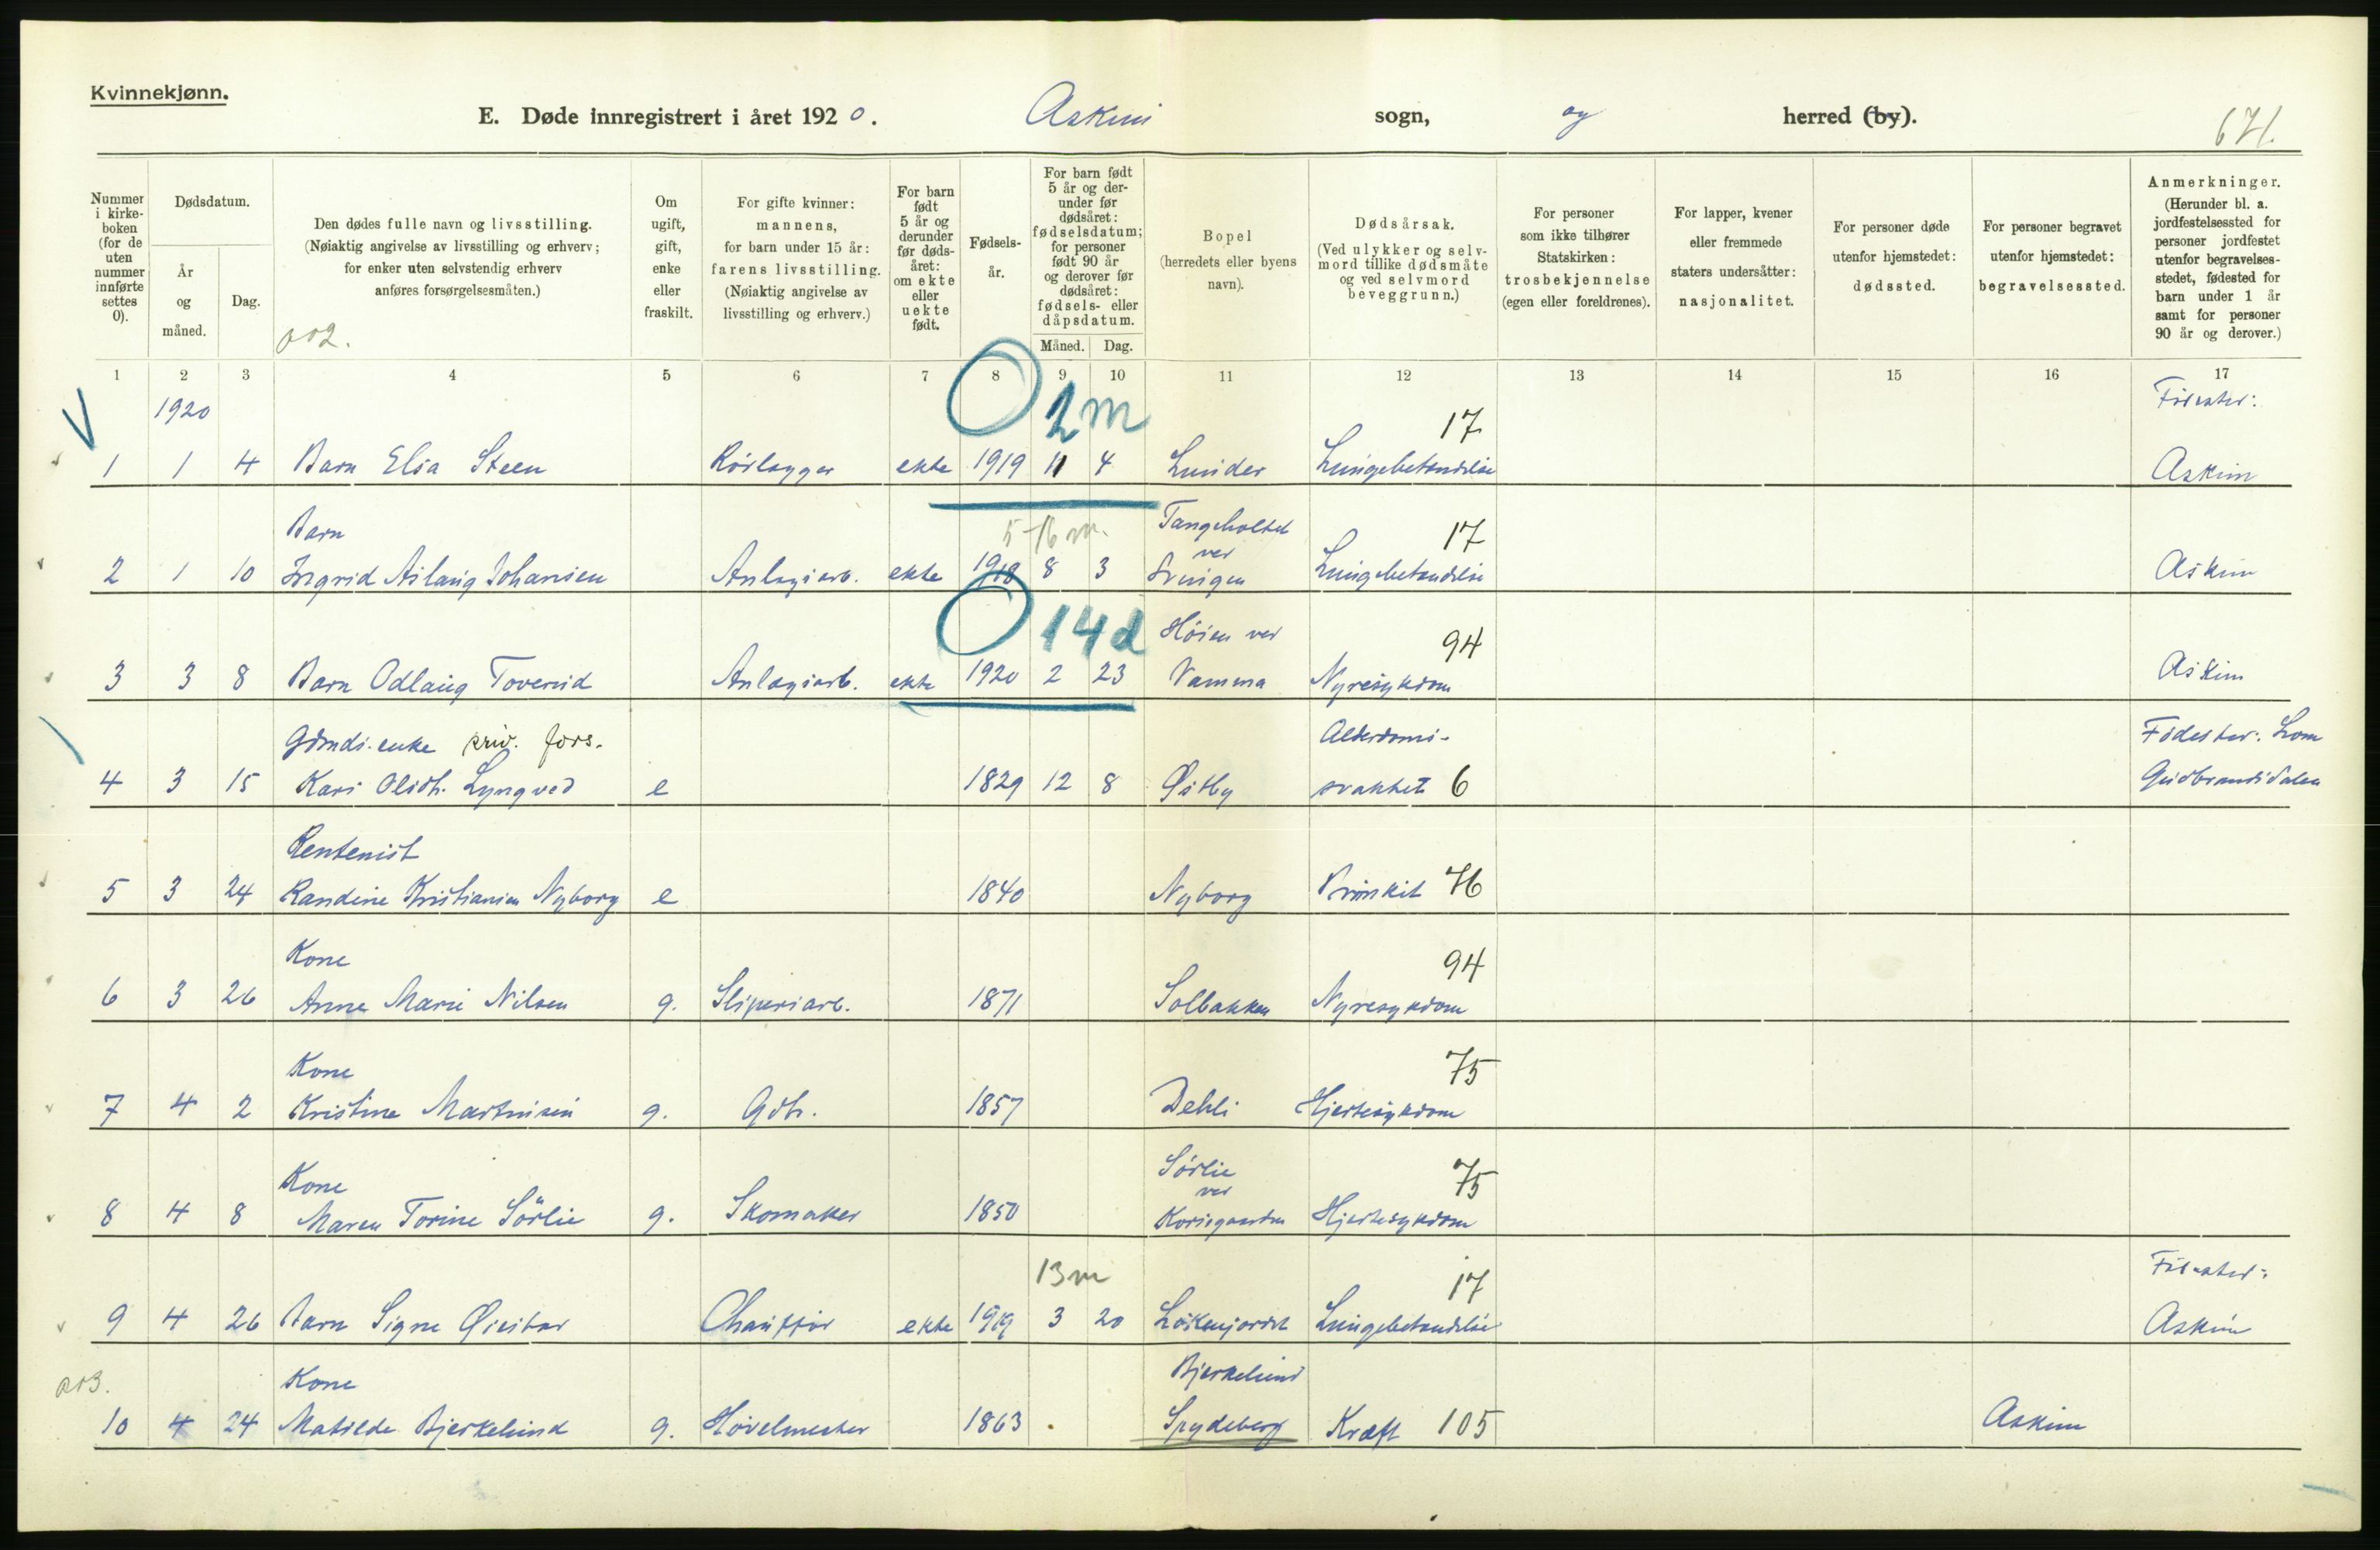 Kvinnekjønn.
E. Døde innregistrert i året 1920. Askim sogn, og herred (by).
671.
Nummer i kirke- boken (for de uten nummer innførte settes 0).
Dødsdatum.
År og måned.
Dag.
Den dødes fulle navn og livsstilling.
(Nøiaktig angivelse av livsstilling og erhverv;
for enker uten selvstendig erhverv
anføres forsørgelsesmåten.)
002.
Om ugift, gift, enke eller fraskilt.
For gifte kvinner:
mannens,
for barn under 15 år:
farens livsstilling.
(Nøiaktig angivelse av
livsstilling og erhverv.)
For barn født 5 år og derunder før døds- året: om ekte eller uekte født.
Fødsels- år.
For barn født 5 år og der- under før dødsåret: fødselsdatum; for personer født 90 år og derover før dødsåret: fødsels- eller dåpsdatum.
Måned. Dag.
Bopel
(herredets eller byens
navn).
Dødsårsak.
(Ved ulykker og selv-
mord tillike dødsmåte
og ved selvmord
beveggrunn.)
For personer
som ikke tilhører
Statskirken:
trosbekjennelse
(egen eller foreldrenes).
For lapper, kvener
eller fremmede
staters undersåtter:
nasjonalitet.
For personer døde
utenfor hjemstedet:
dødssted.
For personer begravet
utenfor hjemstedet:
begravelsessted.
Anmerkninger.
(Herunder bl. a.
jordfestelsessted for
personer jordfestet
utenfor begravelses-
stedet, fødested for
barn under 1 år
samt for personer
90 år og derover.)
1 2 3 4 5 6 7 8 9 10 11 12 13 14 15 16 17
1920 0 2 m 17
1 1 4 Barn Elsa Steen Rörlegger ekte 1919 11 4 Lunder Lungebetændelse Askim
Barn 5-16 m. Tangeholtet ver 17
2 1 10 Ingrid Aslaug Johansen Anlægsarb. ekte 1918 8 3 Lungebetændelse Askim
0 14 d Höien ver 94
3 3 8 Barn Odlaug Toverud Anlægsarb. ekte 1920 2 23 Vamma Nyresykdom Askim
Gdmds. enke priv. fors. Alderdoms- Födested: Lom
4 3 15 Kari Olsdtr. Lyngved e 1829 12 8 Østby svakhet 6 Gudbrandsdalen
Rentenist
5 3 24 Randine Kristiansen Nyborg e 1840 Nyborg Bronkit 76
Kone 94
6 3 26 Anne Marie Nilsen g. Sliperiarb. 1871 Solbakken Nyresykdom
Kone 75
7 4 2 Kristine Martinsen g. Gdbr. 1857 Dehli Hjertesykdom
Kone Sörlie ver 75
8 4 8 Maren Torine Sörlie g. Skomaker 1850 Korsegaarden Hjertesykdom
13 m 17
9 4 26 Barn Signe Chaufför ekte 1919 3 20 Lökenjordet Lungebetændelse Askim
003. Kone Bjerkelund
10 4 24 Matilde Bjerkelund g. Hövelmester 1863 Spydeberg Kræft 105 Askim